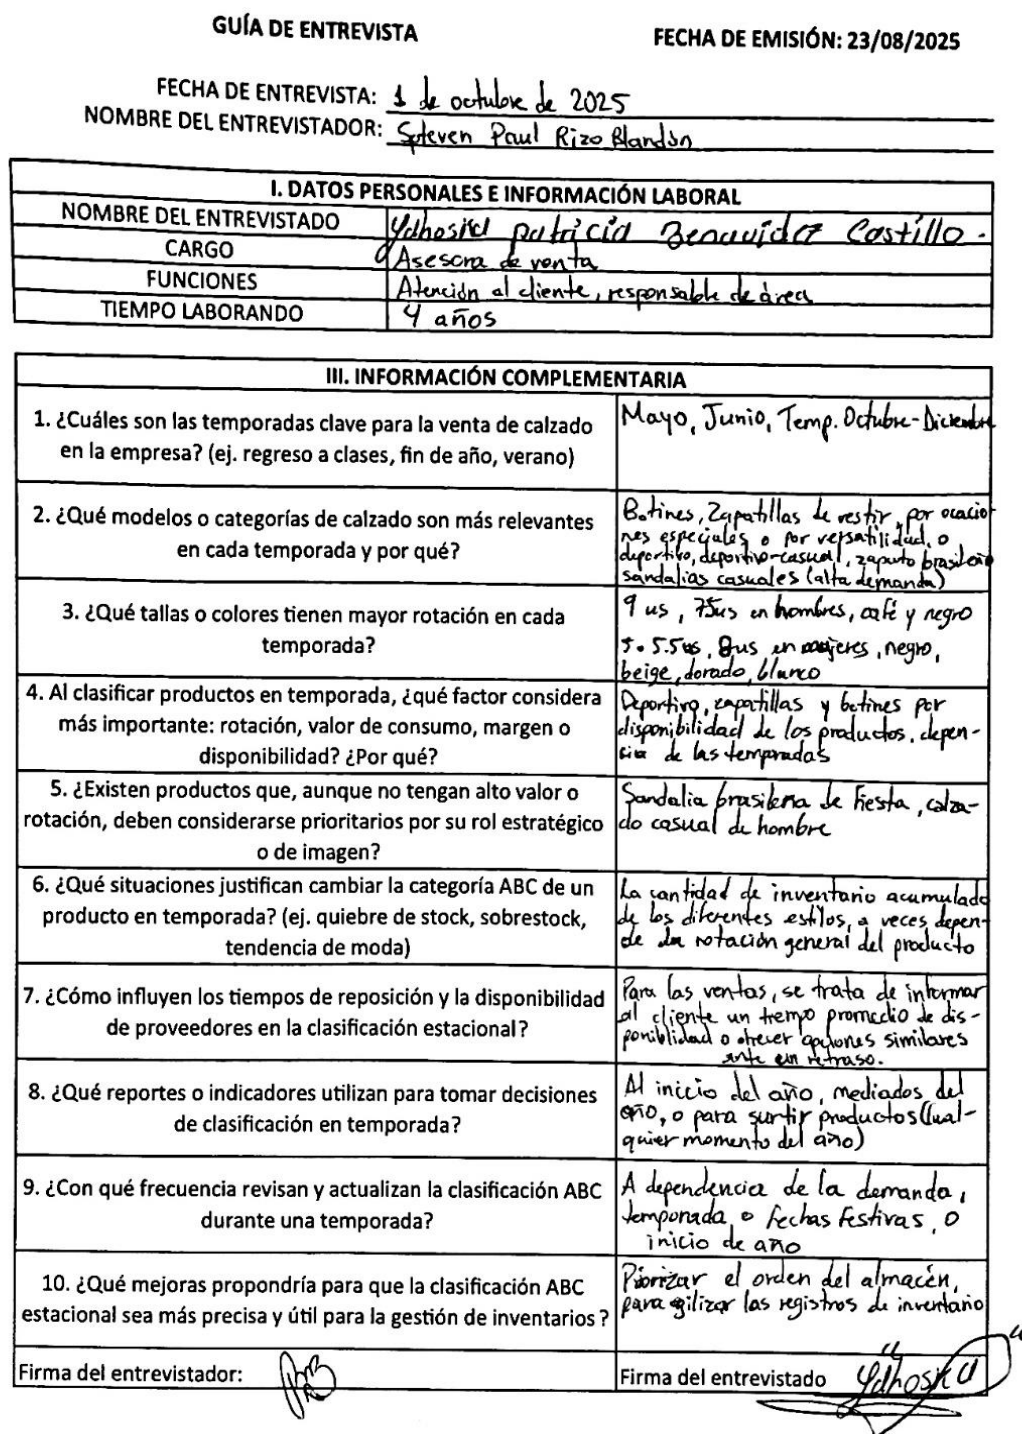 GUÍA DE ENTREVISTA
FECHA DE EMISIÓN: 23/08/2025
FECHA DE ENTREVISTA: 1 de octubre de 2025
NOMBRE DEL ENTREVISTADOR: Steven Paul Rizo Blandón
I. DATOS PERSONALES E INFORMACIÓN LABORAL
NOMBRE DEL ENTREVISTADO Ydhoskd patricia Benavidez Castillo.
CARGO Asesora de venta
FUNCIONES Atención al cliente, responsable de área
TIEMPO LABORANDO 4 años
III. INFORMACIÓN COMPLEMENTARIA
1. ¿Cuáles son las temporadas clave para la venta de calzado
en la empresa? (ej. regreso a clases, fin de año, verano)
Mayo, Junio, Temp. Octubre-Diciembre
2. ¿Qué modelos o categorías de calzado son más relevantes
en cada temporada y por qué?
Botines, Zapatillas de vestir, por ocacio
nes especiales o por versatilidad, o
deportivo, deportivo-casual, zapato brasileño
sandalias casuales (alta demanda)
3. ¿Qué tallas o colores tienen mayor rotación en cada
temporada?
9 us, 7.5us en hombres, café y negro
5. 5.5us, 8us en mujeres, negro,
beige, dorado, blanco
4. Al clasificar productos en temporada, ¿qué factor considera
más importante: rotación, valor de consumo, margen o
disponibilidad? ¿Por qué?
Deportivo, zapatillas y botines por
disponibilidad de los productos, depen-
cia de las temporadas
5. ¿Existen productos que, aunque no tengan alto valor o
rotación, deben considerarse prioritarios por su rol estratégico
o de imagen?
Sandalia brasilena de fiesta, calza-
do casual de hombre
6. ¿Qué situaciones justifican cambiar la categoría ABC de un
producto en temporada? (ej. quiebre de stock, sobrestock,
tendencia de moda)
La cantidad de inventario acumulado
de los diferentes estilos, a veces depen-
de la rotación general del producto
7. ¿Cómo influyen los tiempos de reposición y la disponibilidad
de proveedores en la clasificación estacional?
Para las ventas, se trata de informar
al cliente un tiempo promedio de dis-
poniblidad o ofrecer opciones similares
ante un retraso.
8. ¿Qué reportes o indicadores utilizan para tomar decisiones
de clasificación en temporada?
Al inicio del año, mediados del
año, o para surtir productos (Cual-
quier momento del año)
9. ¿Con qué frecuencia revisan y actualizan la clasificación ABC
durante una temporada?
A dependencia de la demanda,
temporada o fechas festivas, o
inicio de año
10. ¿Qué mejoras propondría para que la clasificación ABC
estacional sea más precisa y útil para la gestión de inventarios?
Piorizar el orden del almacén,
para agilizar los registros de inventario
Firma del entrevistador:
Firma del entrevistado